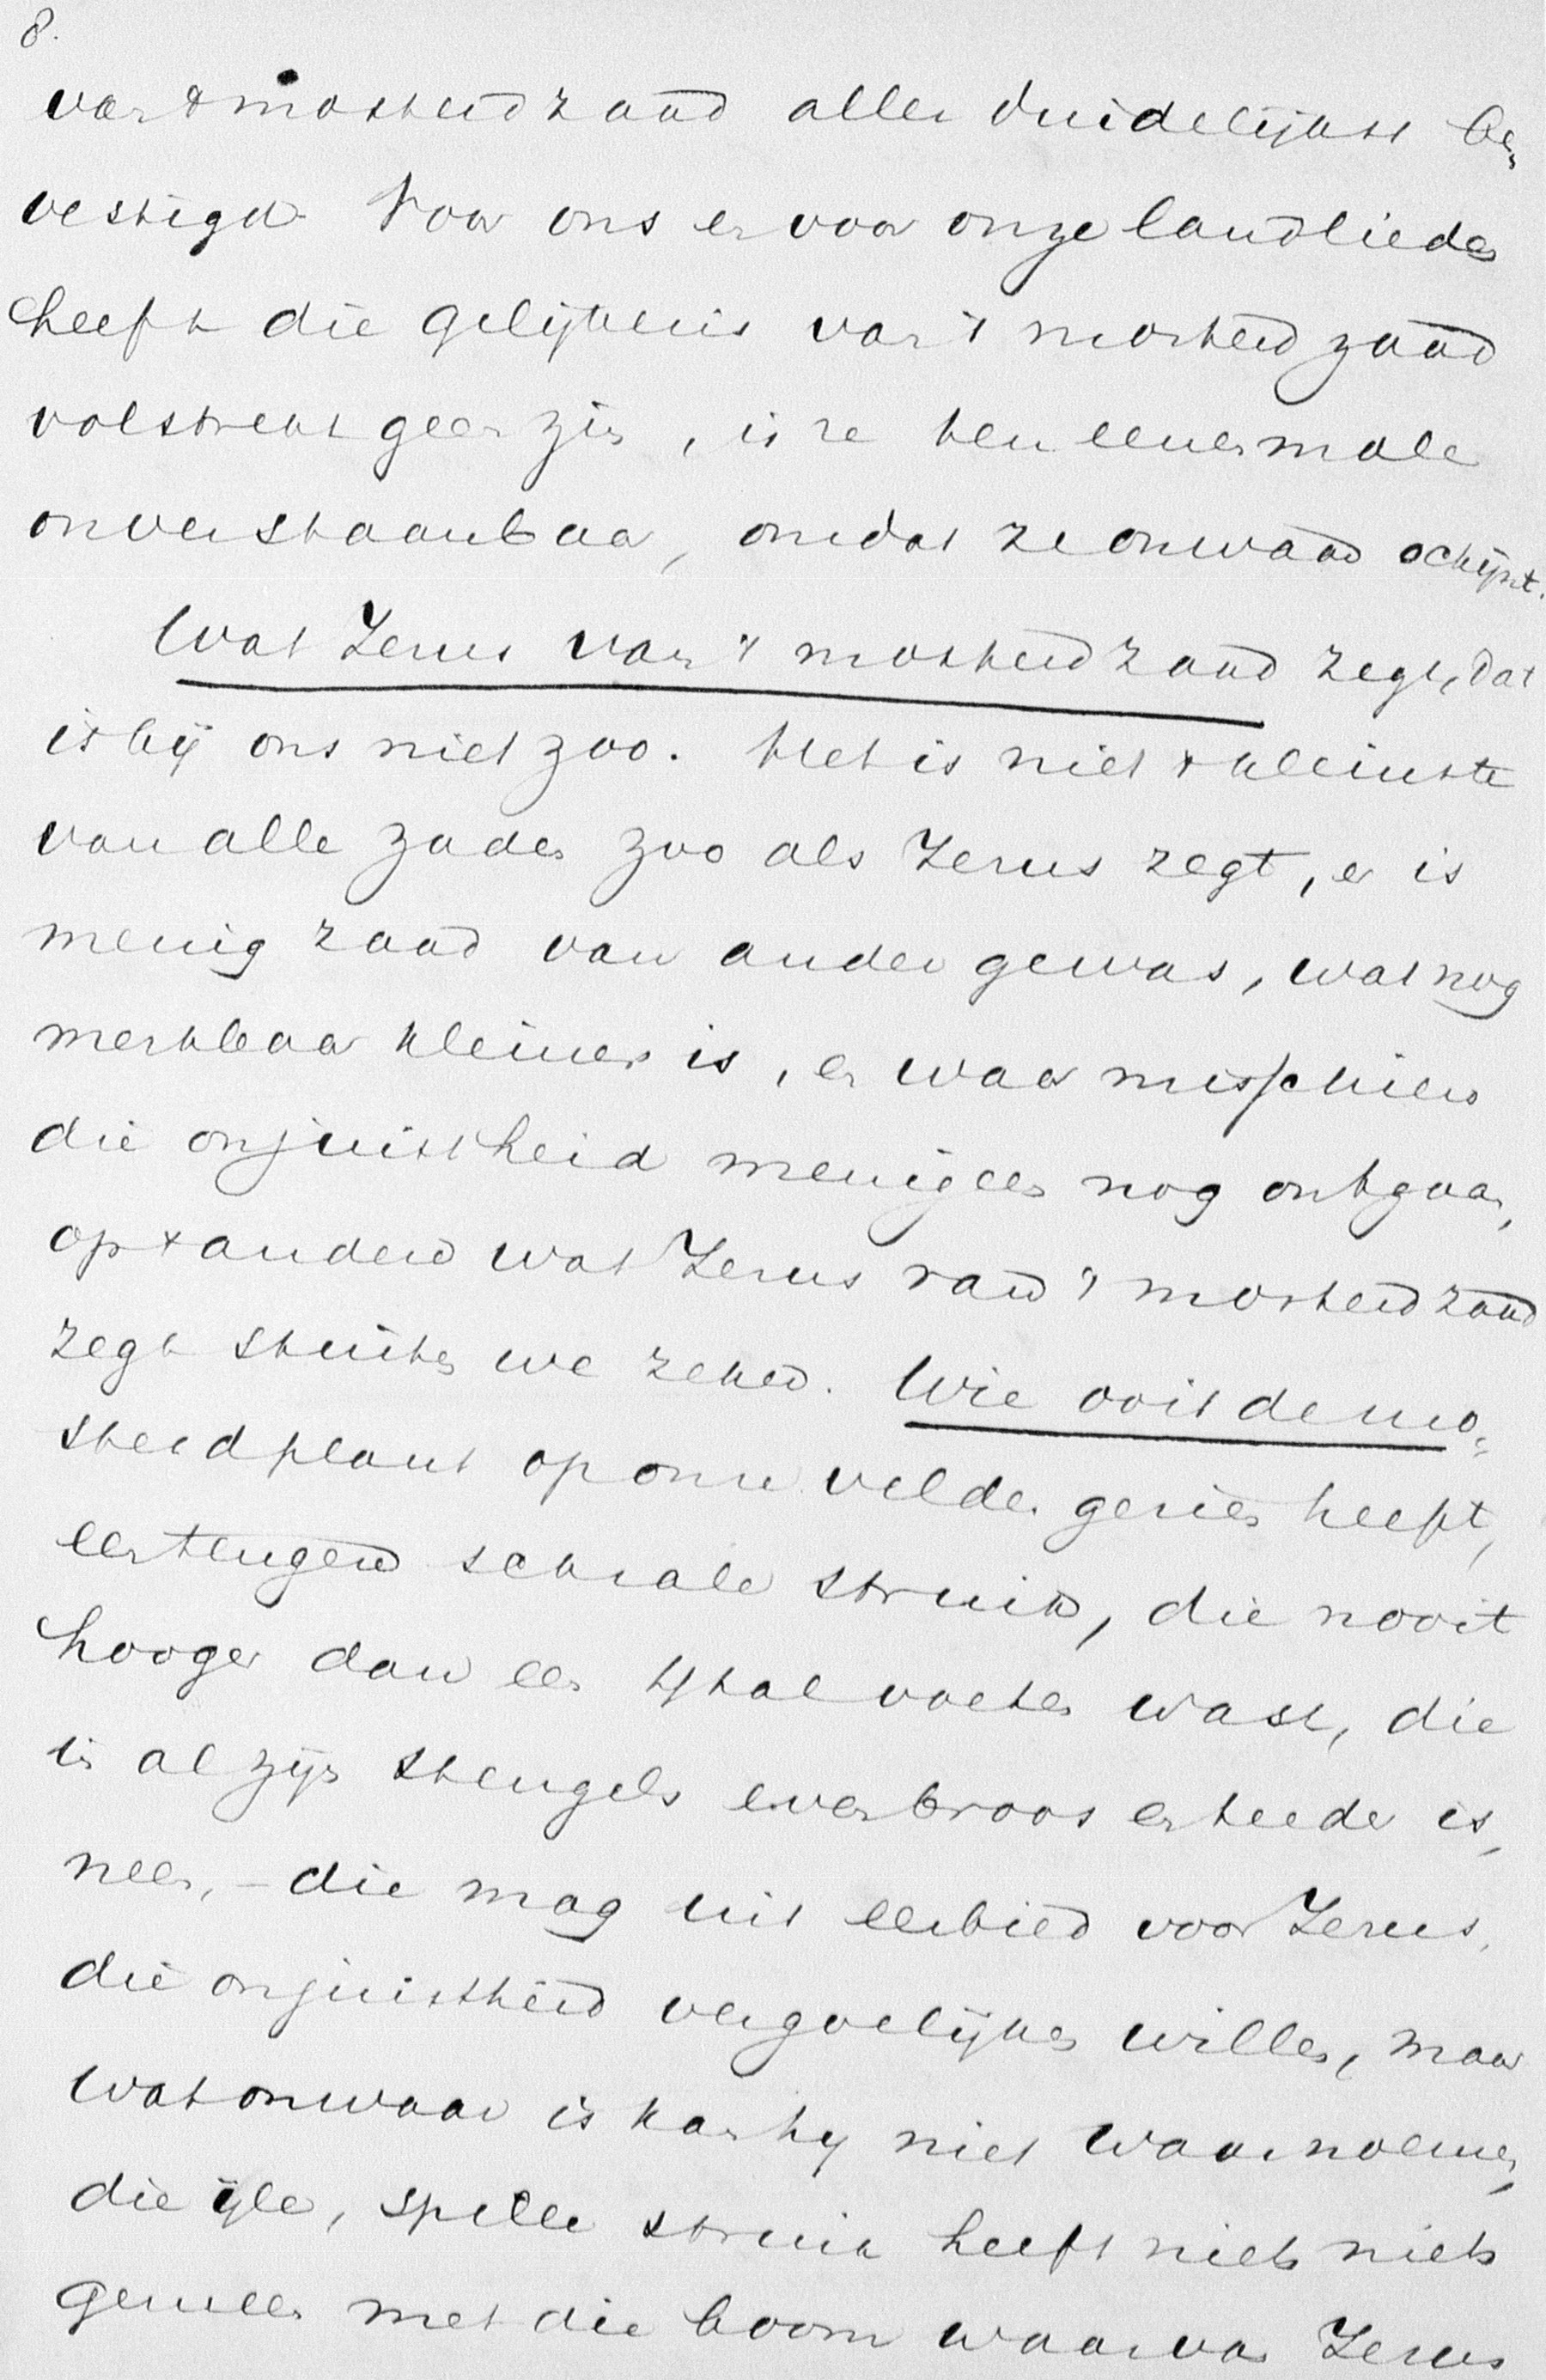 8.
van 't mosterdzaad aller duidelijkst be„
vestigd. Voor ons en voor onze landlieden
heeft die gelijkenis van 't mosterdzaad
volstrekt geen zin, is ze ten eenenmale
onverstaanbaar, omdat ze onwaar schijnt.
Wat Jezus van 't mosterdzaad zegt, dat
is bij ons niet zoo. Het is niet 't kleinste
van alle zaden zoo als Jezus zegt, er is
menig zaad van ander gewas, wat nog
merkbaar kleiner is, en waar misschien
die onjuistheid menigeen nog ontgaan,
op 't andere wat Jezus van 't mosterdzaad
zegt stuiten we zeker. Wie ooit de mo„
sterdplant op onze velden gezien heeft,
een tengere schrale struik, die nooit
hooger dan een 4 tal voeten wast, die
in al zijn stengels even broos en teeder is,
neen, – die mag uit eerbied voor Jezus,
die onjuistheid vergoelijken willen, maar
wat onwaar is kan hij niet waar noemen,
die ijle, spille struik heeft niets niets
gemeen met die boom waarvan Jezus